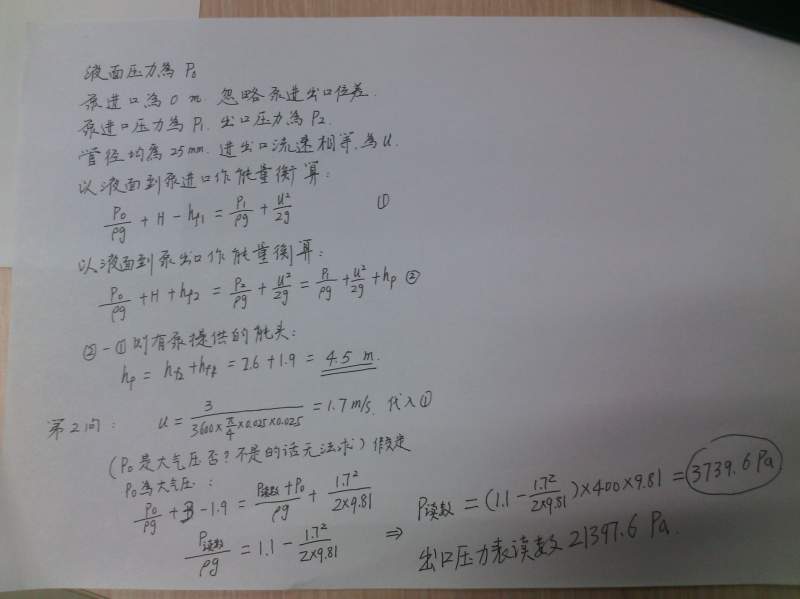 液面压力為 P₀
泵进口為 0 m. 忽略泵进出口位差.
泵进口压力為 P₁. 出口压力為 P₂.
管径均為 25mm. 进出口流速相等, 為 u.
以液面到泵进口作能量衡算:
P₀/ρg + H - hf₁ = P₁/ρg + u²/2g ①
以液面到泵出口作能量衡算:
P₀/ρg + H + hf₂ = P₂/ρg + u²/2g = P₁/ρg + u²/2g + hp ②
② - ① 则有泵提供的能头:
hp = hf₂ + hf₁ = 2.6 + 1.9 = 4.5 m.
第2问: u = 3/(3600×π/4×0.025×0.025) = 1.7 m/s, 代入①
(P₀是大气压否? 不是的话无法求) 假定
P₀為大气压:
P₀/ρg + 3 - 1.9 = (P读数 + P₀)/ρg + 1.7²/(2×9.81)
P读数/ρg = 1.1 - 1.7²/(2×9.81) ⇒ P读数 = (1.1 - 1.7²/(2×9.81))×400×9.81 = 3739.6 Pa
出口压力表读数 21397.6 Pa.